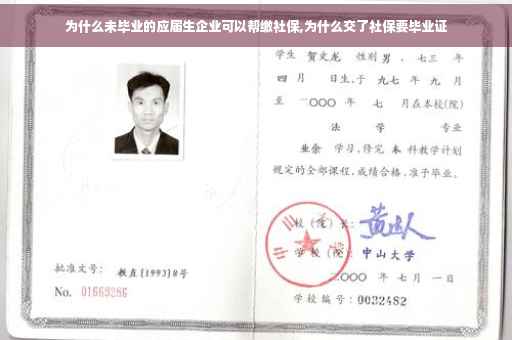 为什么未毕业的应届生企业可以帮缴社保,为什么交了社保要毕业证
学生 贺文龙 性别 男 、七三 年
四 月 日生,于 九七 年 九 月
至 二〇〇〇 年 七 月在本校(院)
法 学 专业
业余 学习,修完 本 科教学计划
规定的全部课程,成绩合格,准予毕业。
校 (院) 长:
学 校 (院): 中山大学
二〇〇〇 年 七 月 一 日
学校编号: 0032482
批准文号: 教直[1993]8号
No. 01669286